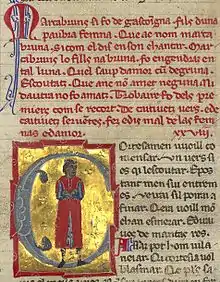 Marcabruns si fo de gascoigna. fils duna
paubra femna. Que ac nom marca
bruna. Si com el dis en son chantar. Mar
cabruns lo fills na bruna. fo engendraz en
tal luna. Quel saup damor cum degruna.
Escoutatz. Que anc no amet neguna. Ni
dautra no fo amatz. Trobaire fo dels pre
miers com se recort. De caitiuetz uers. e de
caitiuetz seruentes. fez e dis mal de las fem
nas e damor. xxviij.
Cortesamen uoill co
mensar. vn uers si
es qui lescoutar. E pos
tant men sui entrem
es. veirai sil porai a
finar. Com uoill mō
chan esmerar. E dirai
uos de mantas res.
ssatz pot hom uila
neiar. Qi cortesia uol
blasmar.